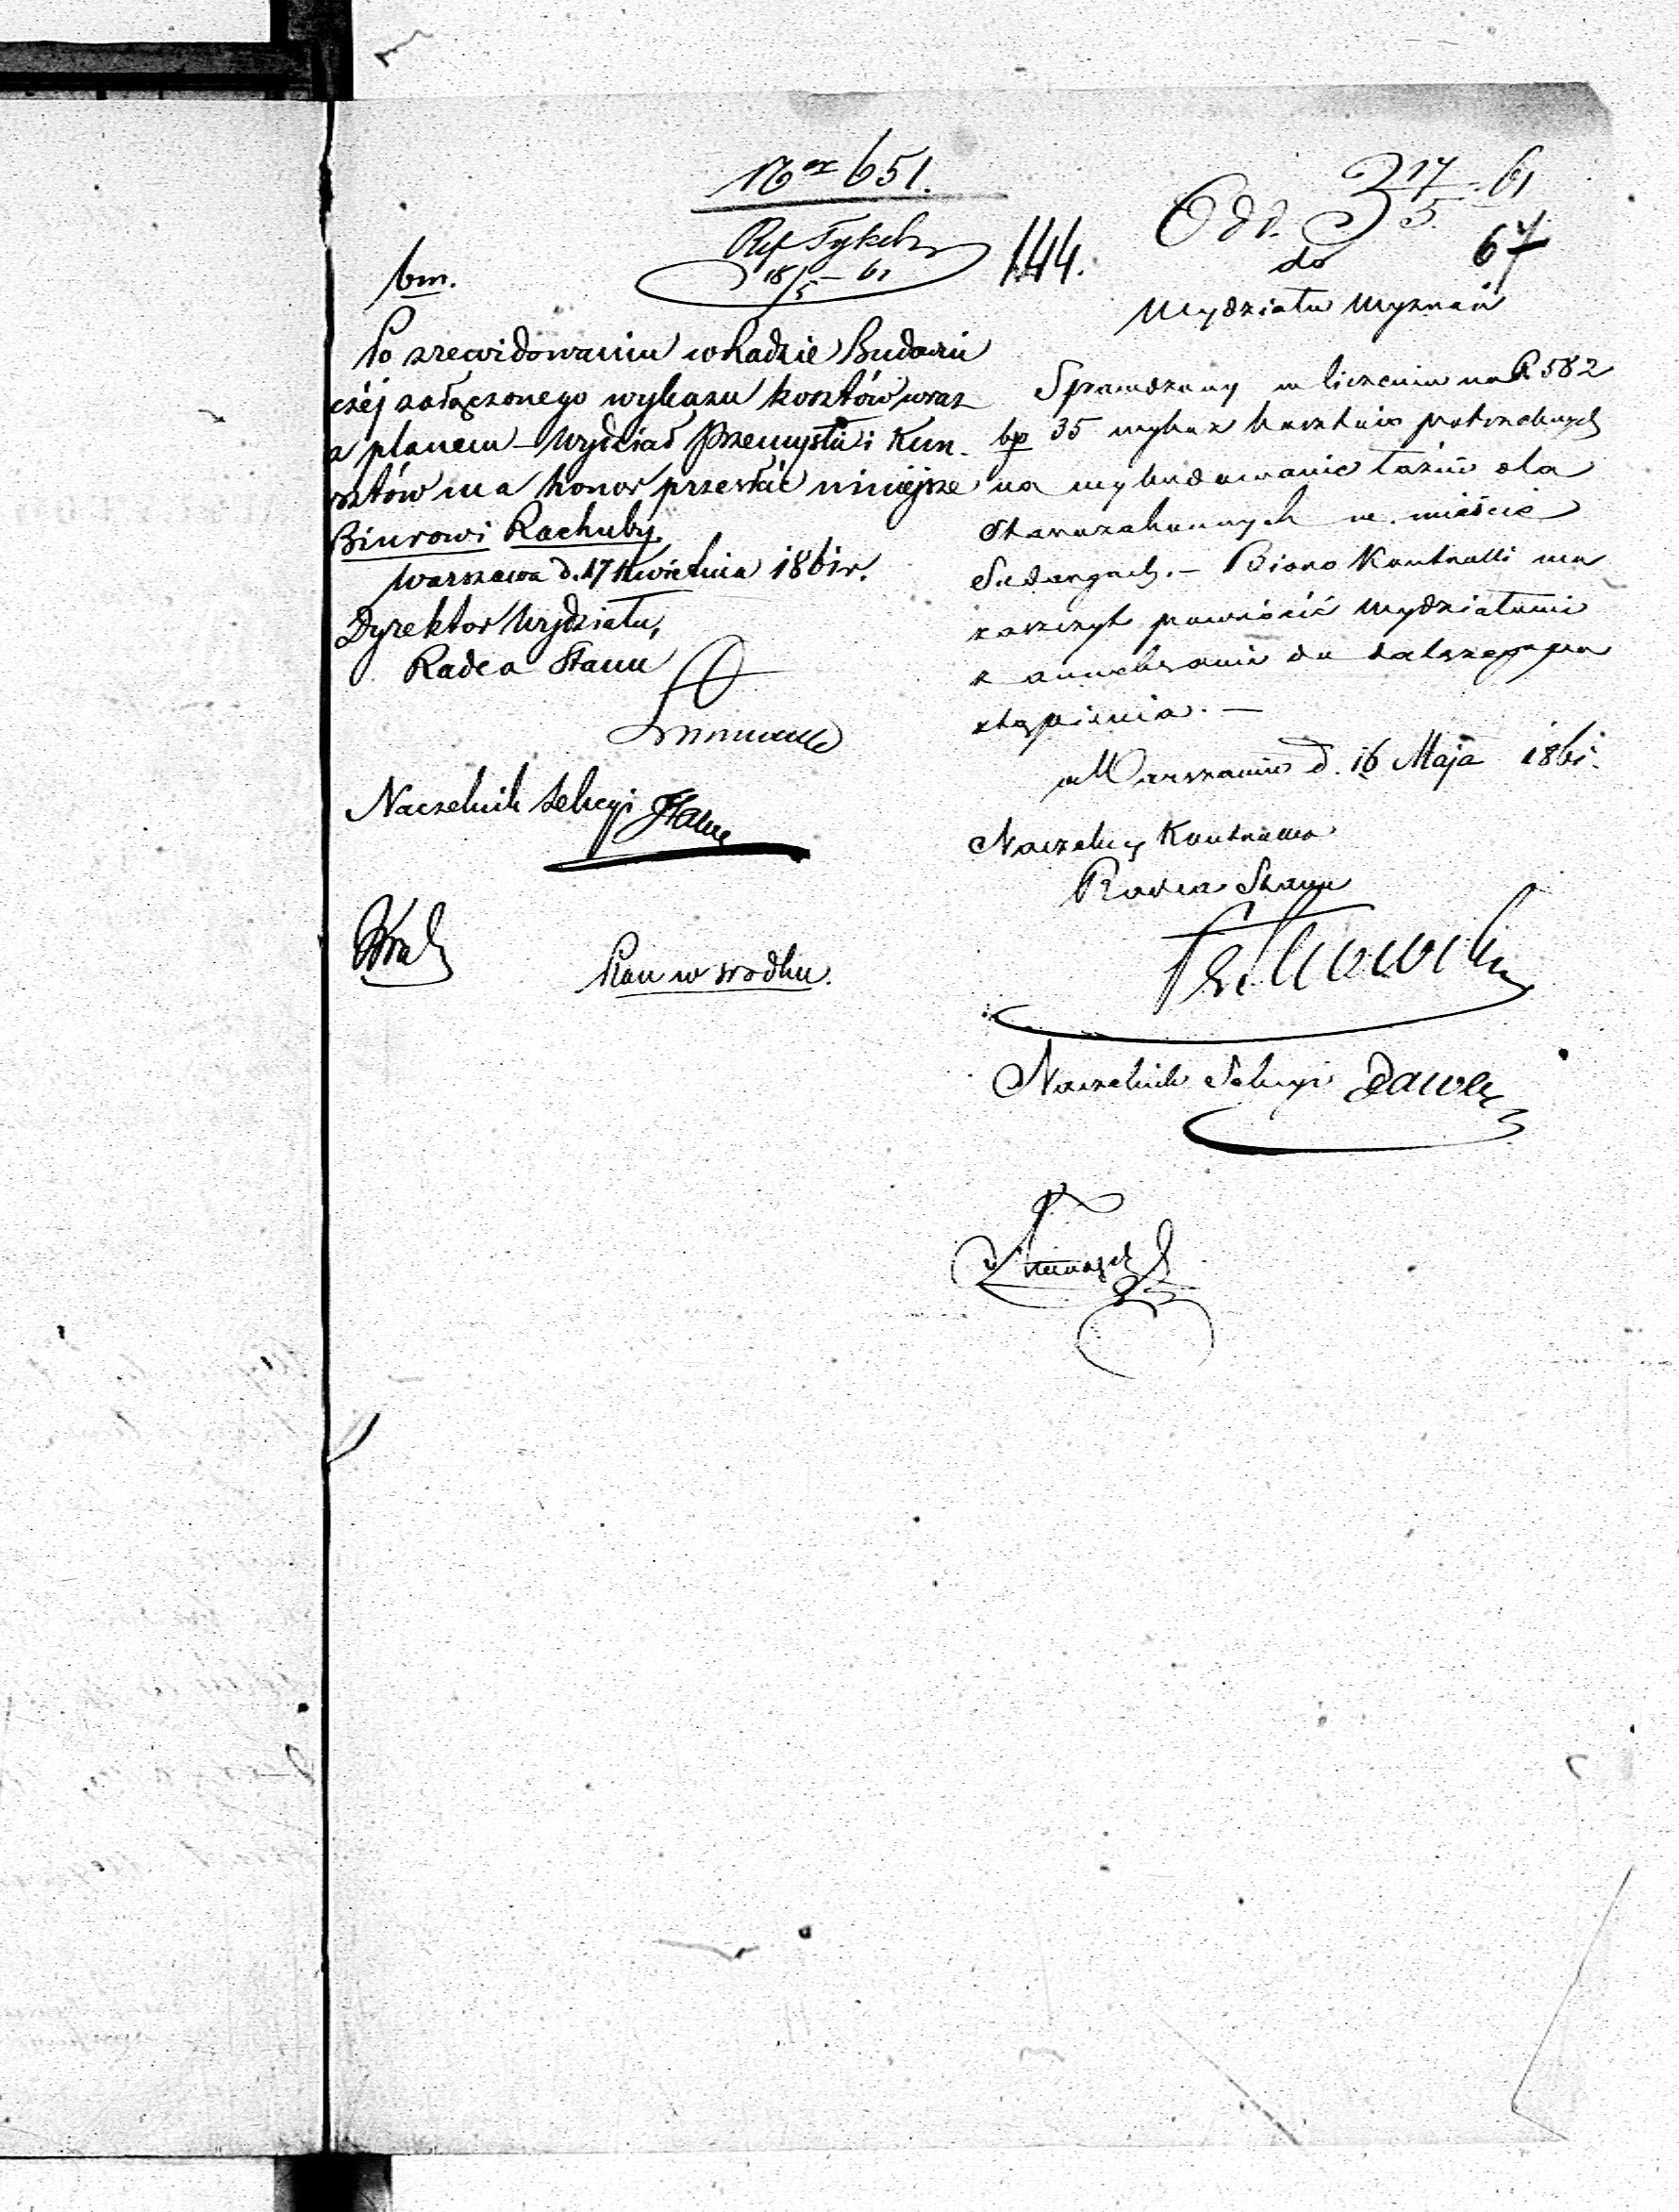 Ner 651.
Ref
18/5 – 61
144.
Odd. 3 17/5. 61
67
bm.
do
Wydziału Wyznań
Po zrewidowaniu w Radzie Budowni
czéj załączonego wykazu kosztów wraz
z planem – Wydział Przemysłu i Kun-
sztów ma honor przesłać niniejsze
Biurowi Rachuby.
Warszawa d. 17 Kwietnia 1861 r.
Dyrektor Wydziału,
Radca Stanu
Naczelnik Sekcyi
Plan w środku.
Sprawdzony w liczeniu na R 582
kp 35 wykaz kosztów potrzebnych
na wybudowanie łaźni dla
Starozakonnych w mieście
Biuro Kontrolli ma
zaszczyt powrócić Wydziałowi
z anneksami do dalszego po
stąpienia. –
w Warszawie d. 16 Maja 1861.
Naczelny Kontroller
Radca Stanu
Naczelnik Sekcyi